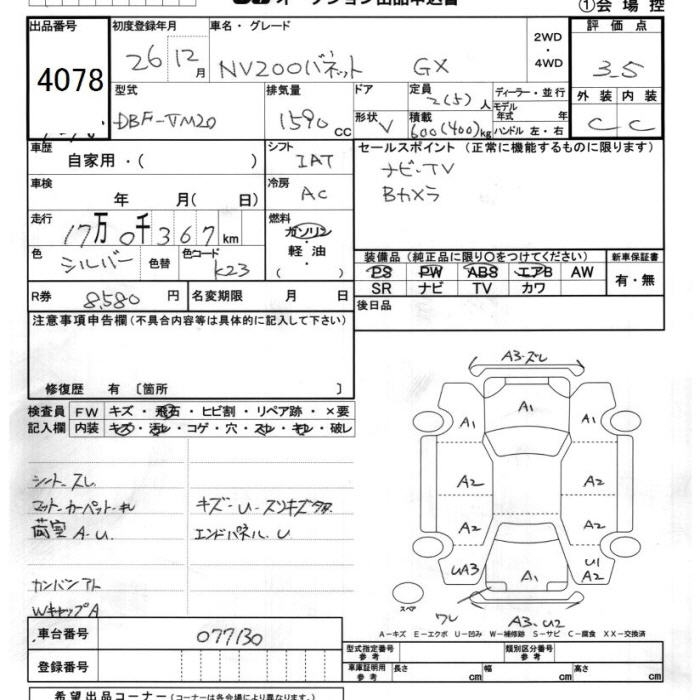 オークション出品申込書
①会場控
出品番号 初度登録年月 車名・グレード 評価点
4078 26 12月 NV200バネット GX 2WD・4WD 3.5
型式 排気量 ドア 定員 ディーラー・並行 外装 内装
DBF-VM20 1590 CC 形状 V 2(5)人 モデル年式 年 C C
積載 600(400)kg ハンドル 左・右
車歴 自家用・( ) シフト IAT セールスポイント (正常に機能するものに限ります)
ナビ・TV
Bカメラ
車検 年 月( 日) 冷房 AC
走行 17万0千367km 燃料 ガソリン・軽油・( )
色 シルバー 色替 色コード K23
装備品 (純正品に限り○をつけてください) 新車保証書
PS PW ABS エアB AW 有・無
SR ナビ TV カワ
R券 8,580円 名変期限 月 日 後日品
注意事項申告欄 (不具合内容等は具体的に記入して下さい)
修復歴 有 〔箇所 〕
検査員 FW キズ・飛石・ヒビ割・リペア跡・×要
記入欄 内装 キズ・汚レ・コゲ・穴・スレ・キレ・破レ
シート・スレ
マット・カーペット・キレ キズ・U・スリキズ多数
荷室 A・U エンドパネル U
カンバンアト
WキャップA
A3・ズレ
A1
A1 A1
A2 A2
A2 A2
UA3 A1 U1 A2
スペア
ワレ A3・U2
A-キズ E-エクボ U-凹み W-補修跡 S-サビ C-腐食 XX-交換済
車台番号 077130
登録番号
型式指定番号 参考 類別区分番号 参考
車庫証明用 参考 長さ cm 幅 cm 高さ cm
希望出品コーナー (コーナーは各会場により異なります。)